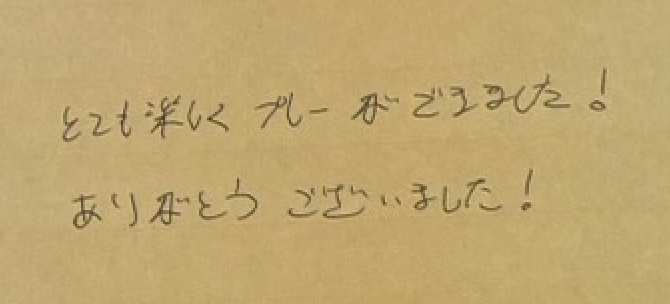 とても楽しく プレーができました！
ありがとう ございました！